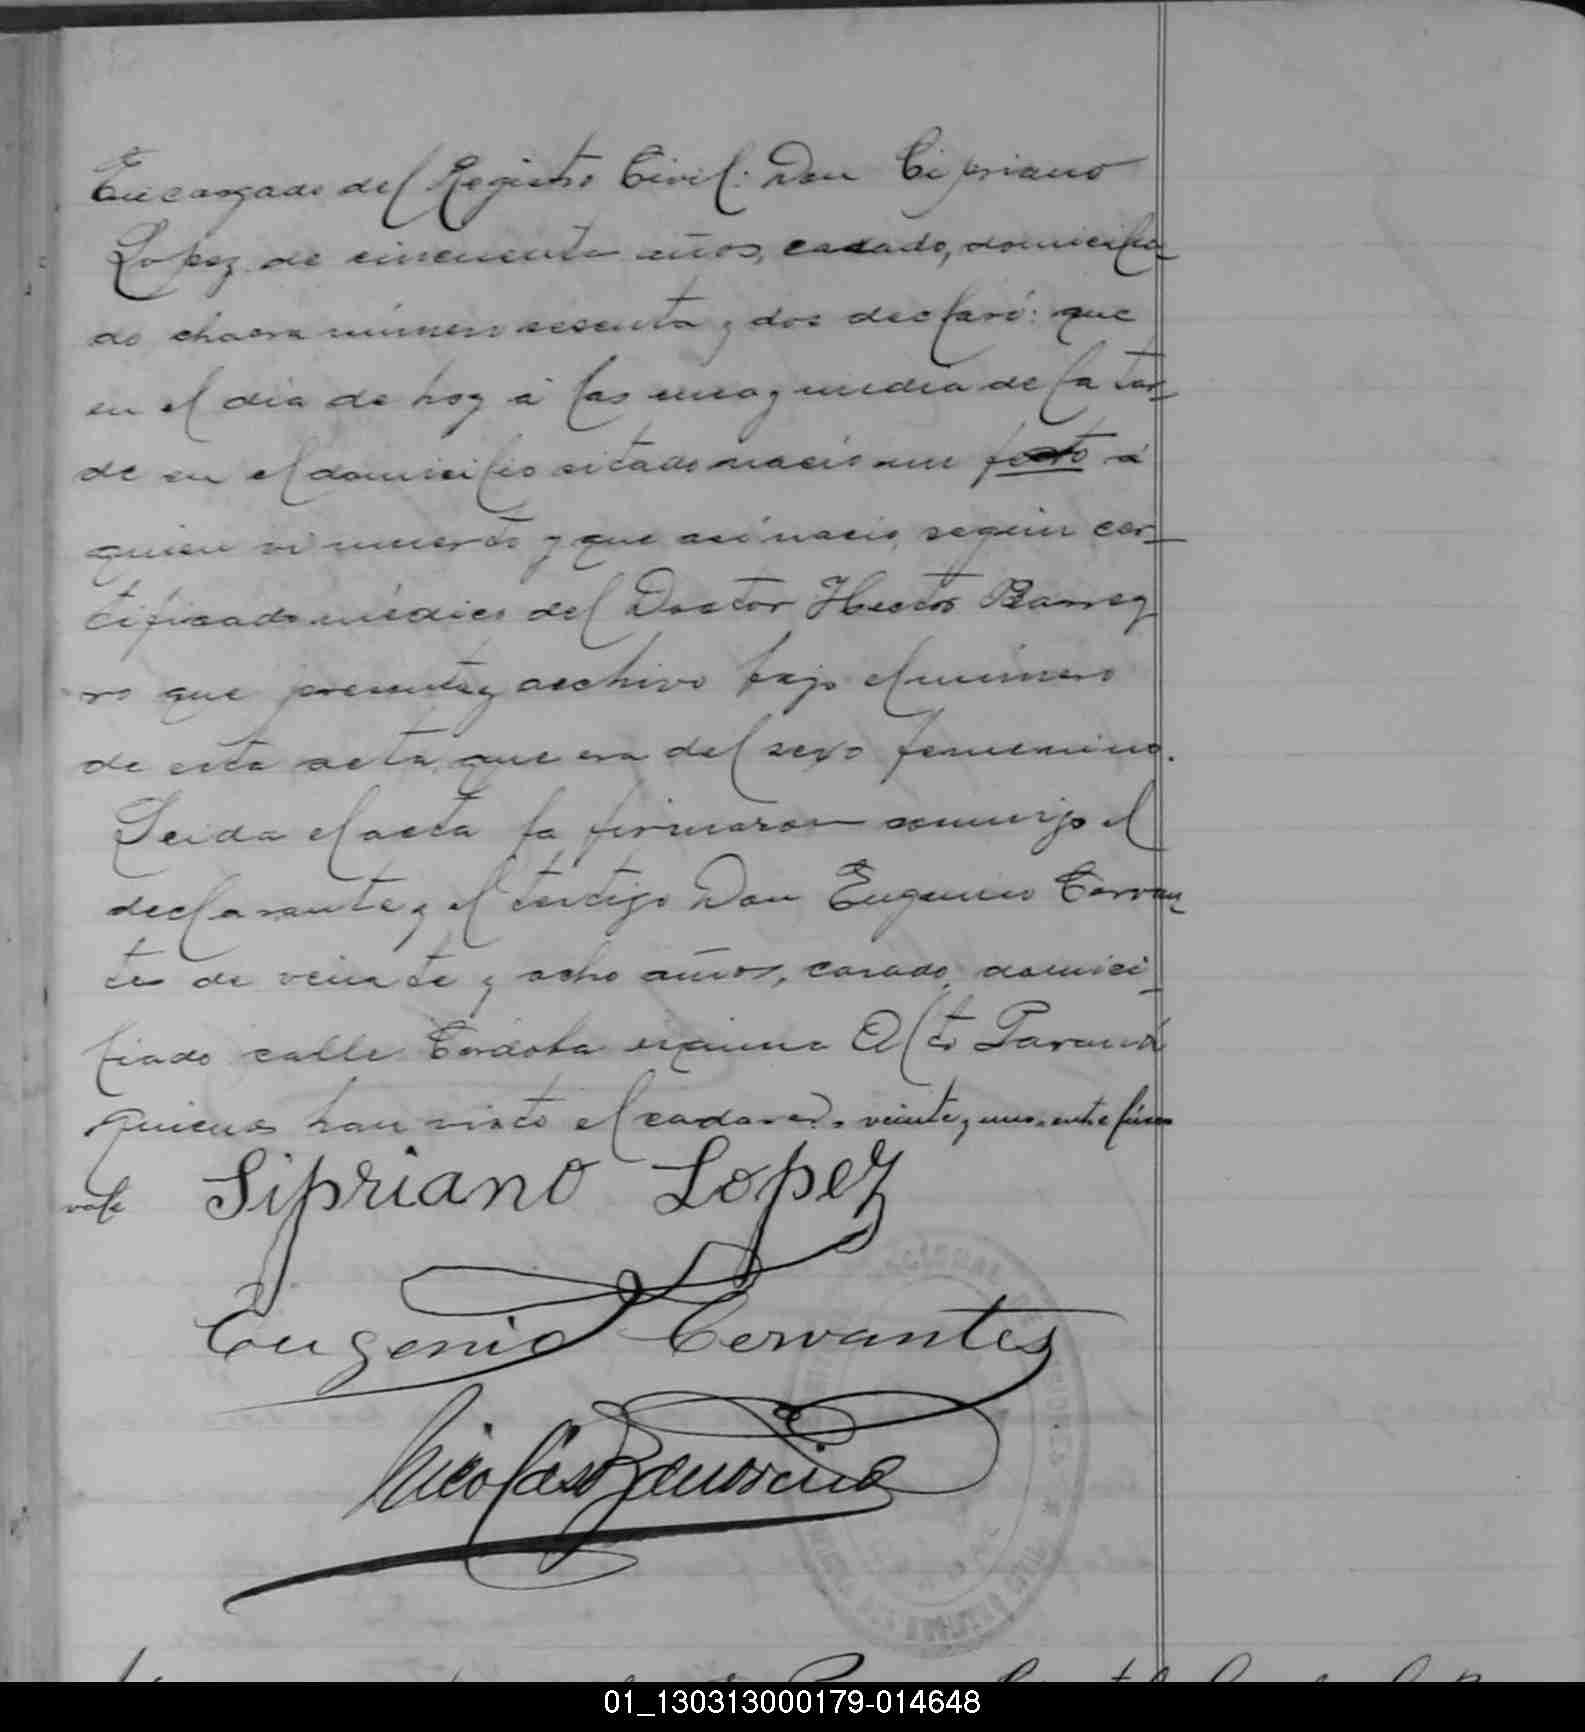 Encargado del Registro Civil: Don Cipriano
Lopez de cincuenta años, casado, domicilia-
do chacra número sesenta y dos declaró: que
en el dia de hoy á las una y media de la tar-
de en el domicilio citado nació un feto á
quien vi muerto y que asi nació, según cer-
tificado médico del Doctor Hector Barrey
ro que presenta y archivo bajo el número
de esta acta, que era del sexo femenino.
Leida el acta la firmaron conmigo el
declarante y el testigo Don Eugenio Cervan-
tes de veinte y ocho años, casado, domici-
liado calle Córdoba esquina Alto Paraná
quienes han visto el cadaver. veinte y uno. entre lineas
vale Sipriano Lopez
Eugenio Cervantes
Nicolas
01_130313000179-014648